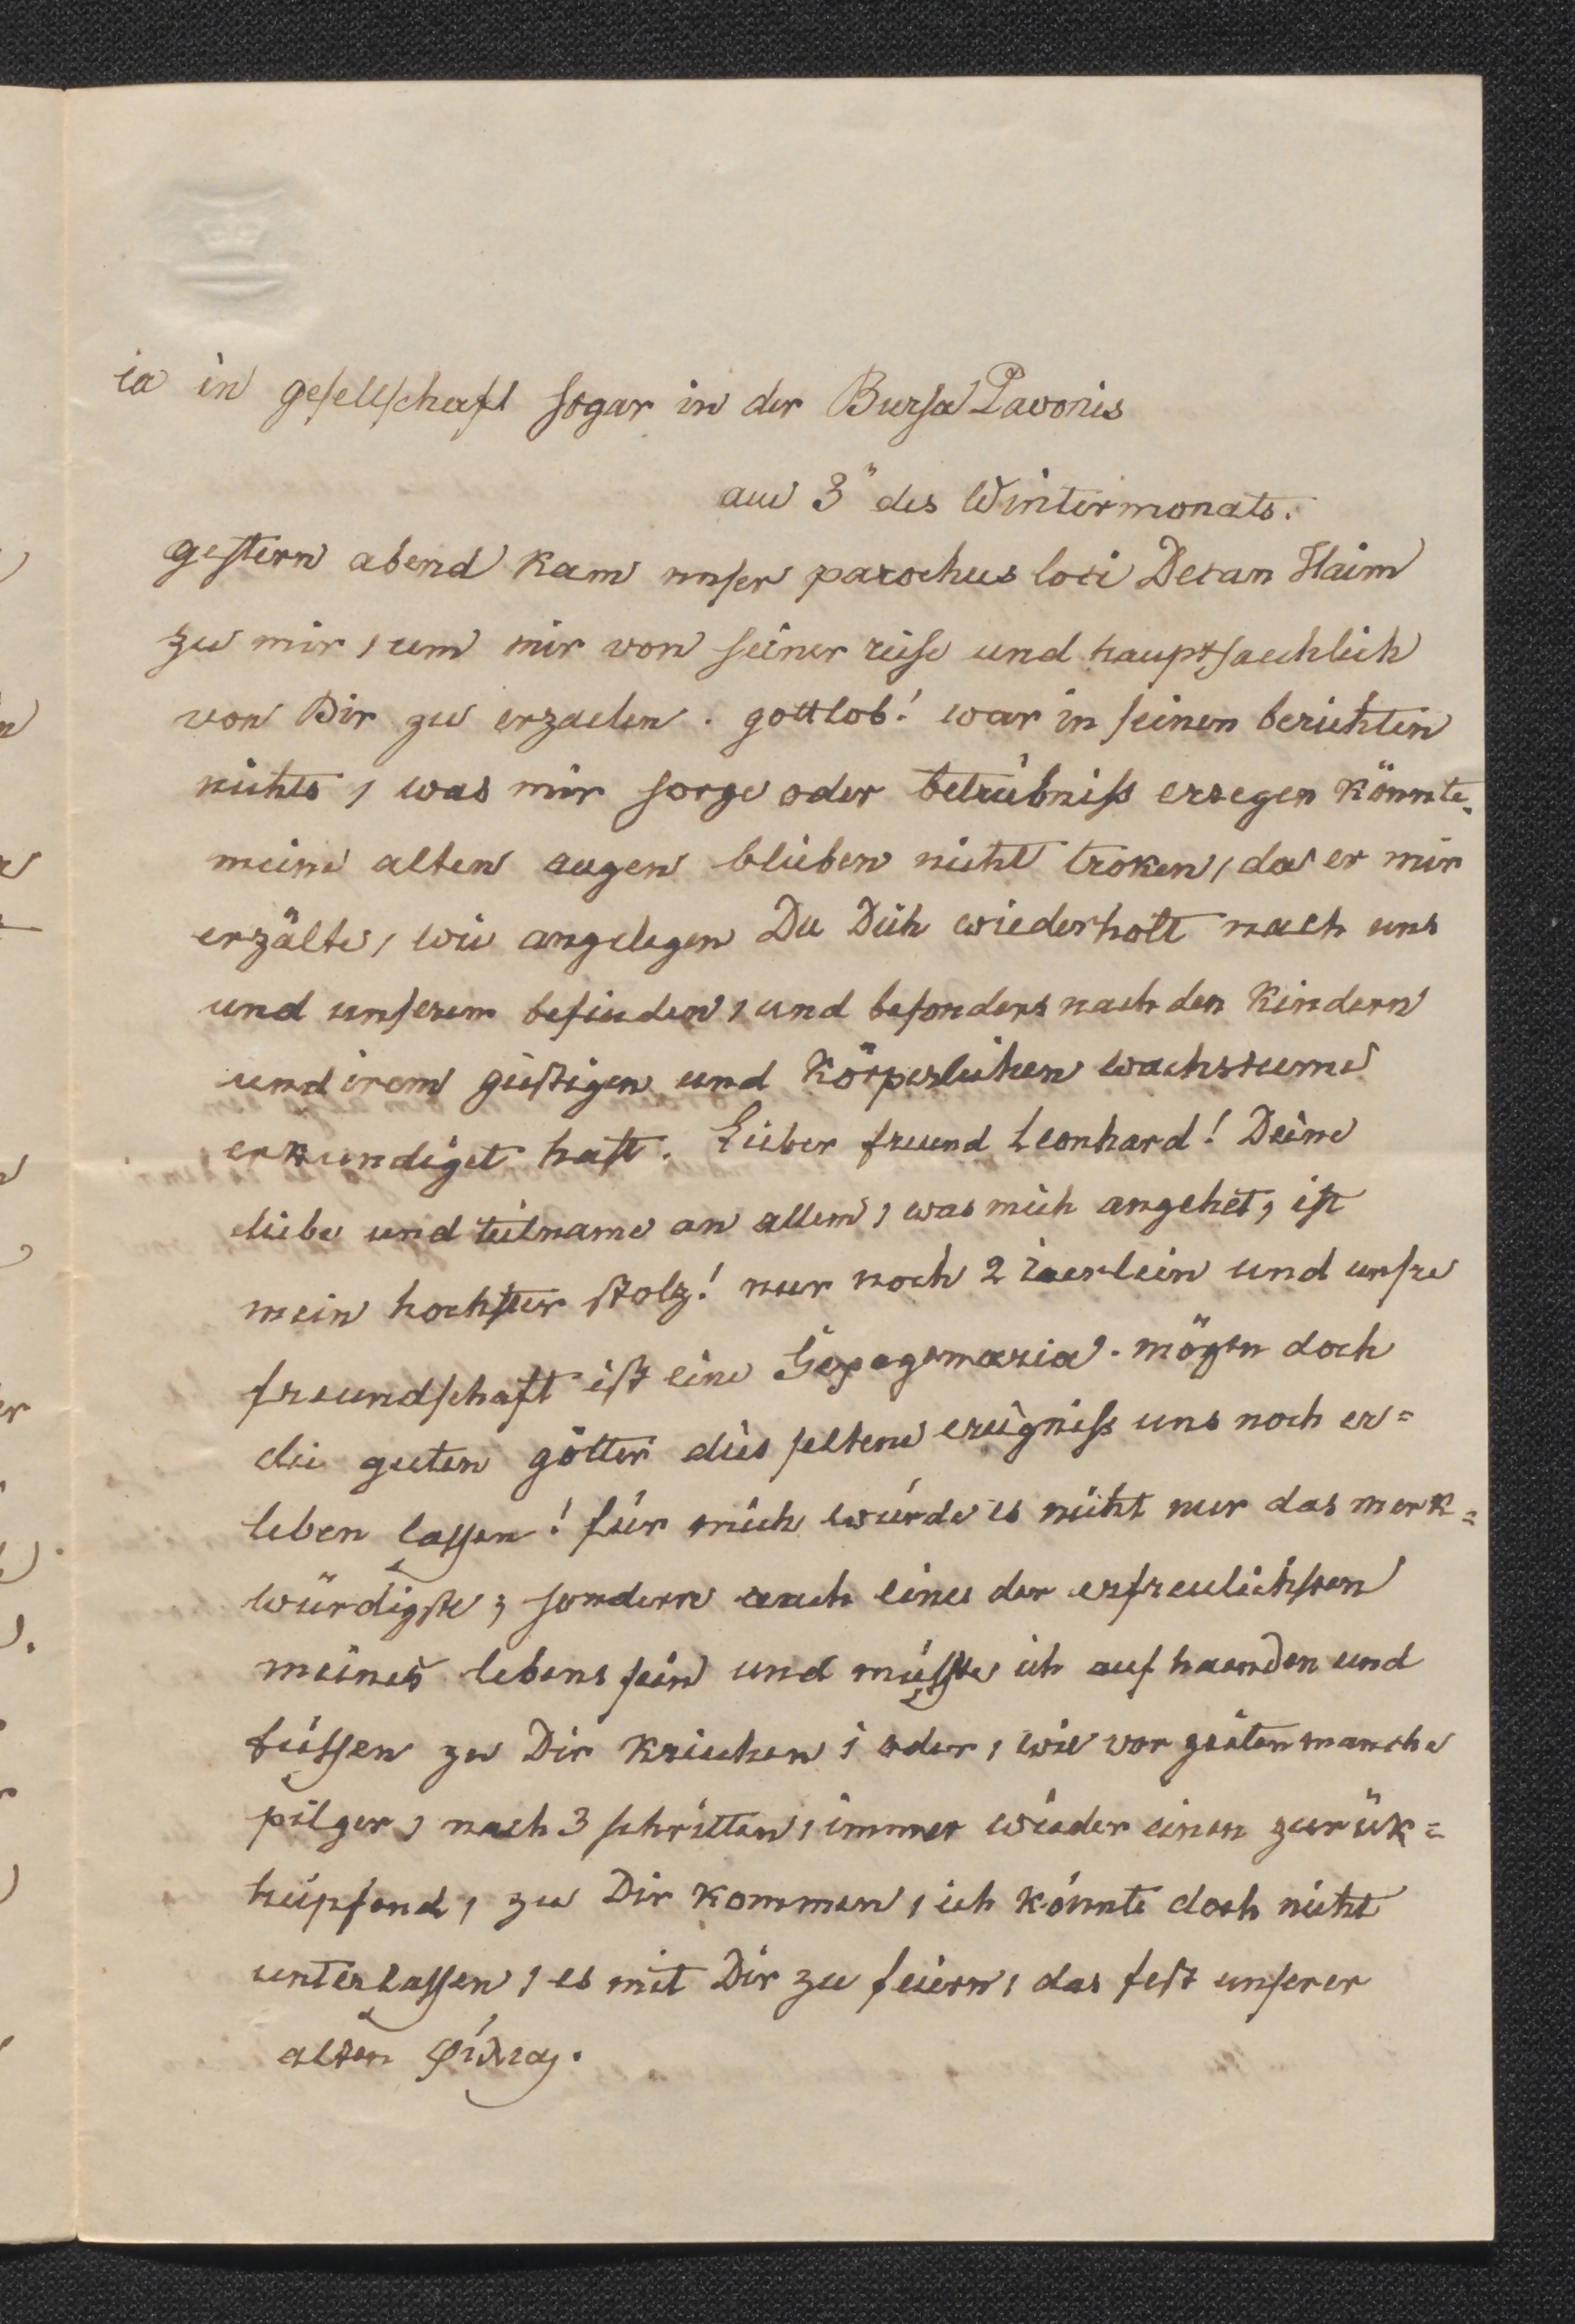 ia in gesellschaft sogar in der Bursa Pavonis
am 3" des Wintermonats.
gestern abend kam unser parochus loci Decan Haim
zu mir, um mir von seiner reise und hauptsaechlich
von Dir zu erzaelen. gottlob! war in seinen berichten
nichts, was mir sorge oder betrübniss erregen könnte.
meine alten augen blieben nicht troken, da er mir
erzälte, wie angelegen Du Dich wiederholt nach uns
und unserem befinden, und besonders nach den Kindern
und irem geistigen und körperlichen wachstume
erkundiget hast. Lieber freund Leonhard! Deine
liebe und teilname an allem, was mich angehet, ist
mein hochster stolz! nur noch 2 iaerlein und unsre
freundschaft ist eine mögen doch
die guten götter dies seltene ereigniss uns noch er=
leben lassen! für mich würde es nicht nur das merk=
würdigste, sondern auch eines der erfreulichsten
meines lebens sein und müsste ich auf haenden und
füssen zu Dir kriechen, oder, wie vor zeiten manche
pilger, nach 3 schritten, immer wieder einen zurük=
hüpfend, zu Dir kommen, ich könnte doch nicht
unterlassen, es mit Dir zu feiern, das fest unserer
alten